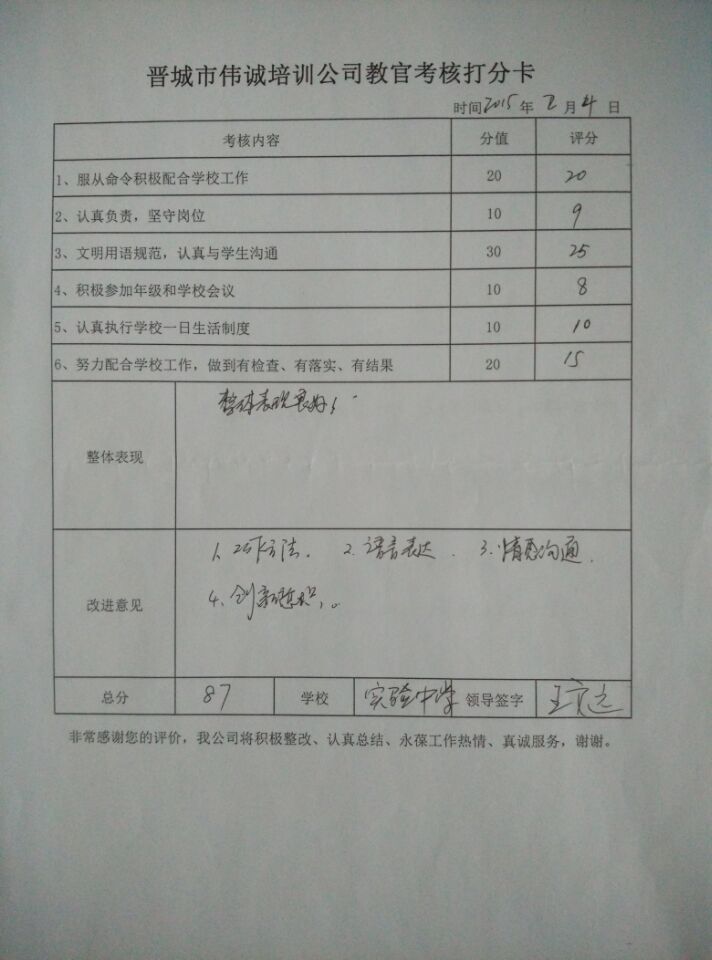 晋城市伟诚培训公司教官考核打分卡
时间2015年2月4日
考核内容 分值 评分
1、服从命令积极配合学校工作 20 20
2、认真负责，坚守岗位 10 9
3、文明用语规范，认真与学生沟通 30 25
4、积极参加年级和学校会议 10 8
5、认真执行学校一日生活制度 10 10
6、努力配合学校工作，做到有检查、有落实、有结果 20 15
整体表现 整体表现良好！
改进意见 1、工作方法. 2.语言表达. 3.情感沟通.
4、创新意识.
总分 87 学校 实验中学 领导签字 王
非常感谢您的评价，我公司将积极整改、认真总结、永葆工作热情、真诚服务，谢谢。